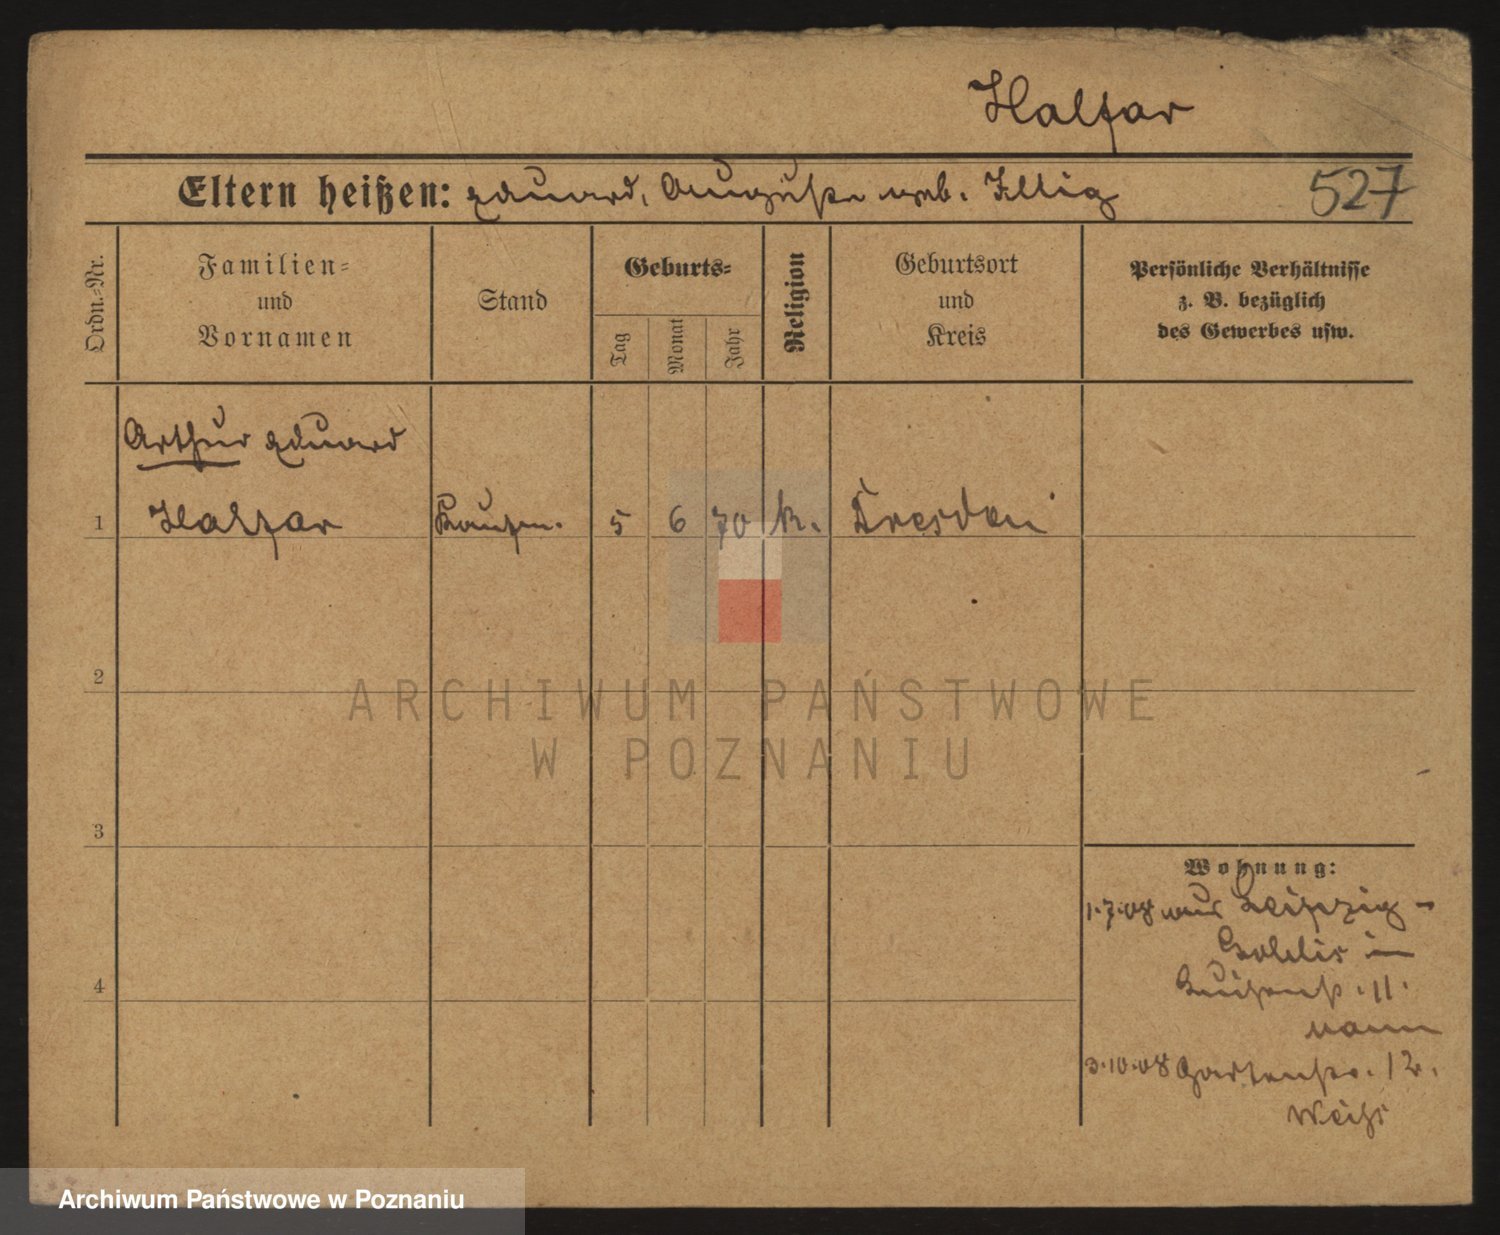 Halfar
Eltern heißen: Eduard, Auguste geb. Illig
527
Ordn.-Nr.
Familien-
und
Vornamen
Stand
Geburts-
Tag
Monat
Jahr
Religion
Geburtsort
und
Kreis
Persönliche Verhältnisse
z. B. bezüglich
des Gewerbes usw.
Arthur Eduard
1 Halfar Kaufm. 5 6 70 k. Dresden
2
3
4
Wohnung:
1.7.08 aus Leipzig-
Gohlis in
Luisenstr. 11.
3.10.08 Gartenstr. 12.
ARCHIWUM PAŃSTWOWE
W POZNANIU
Archiwum Państwowe w Poznaniu